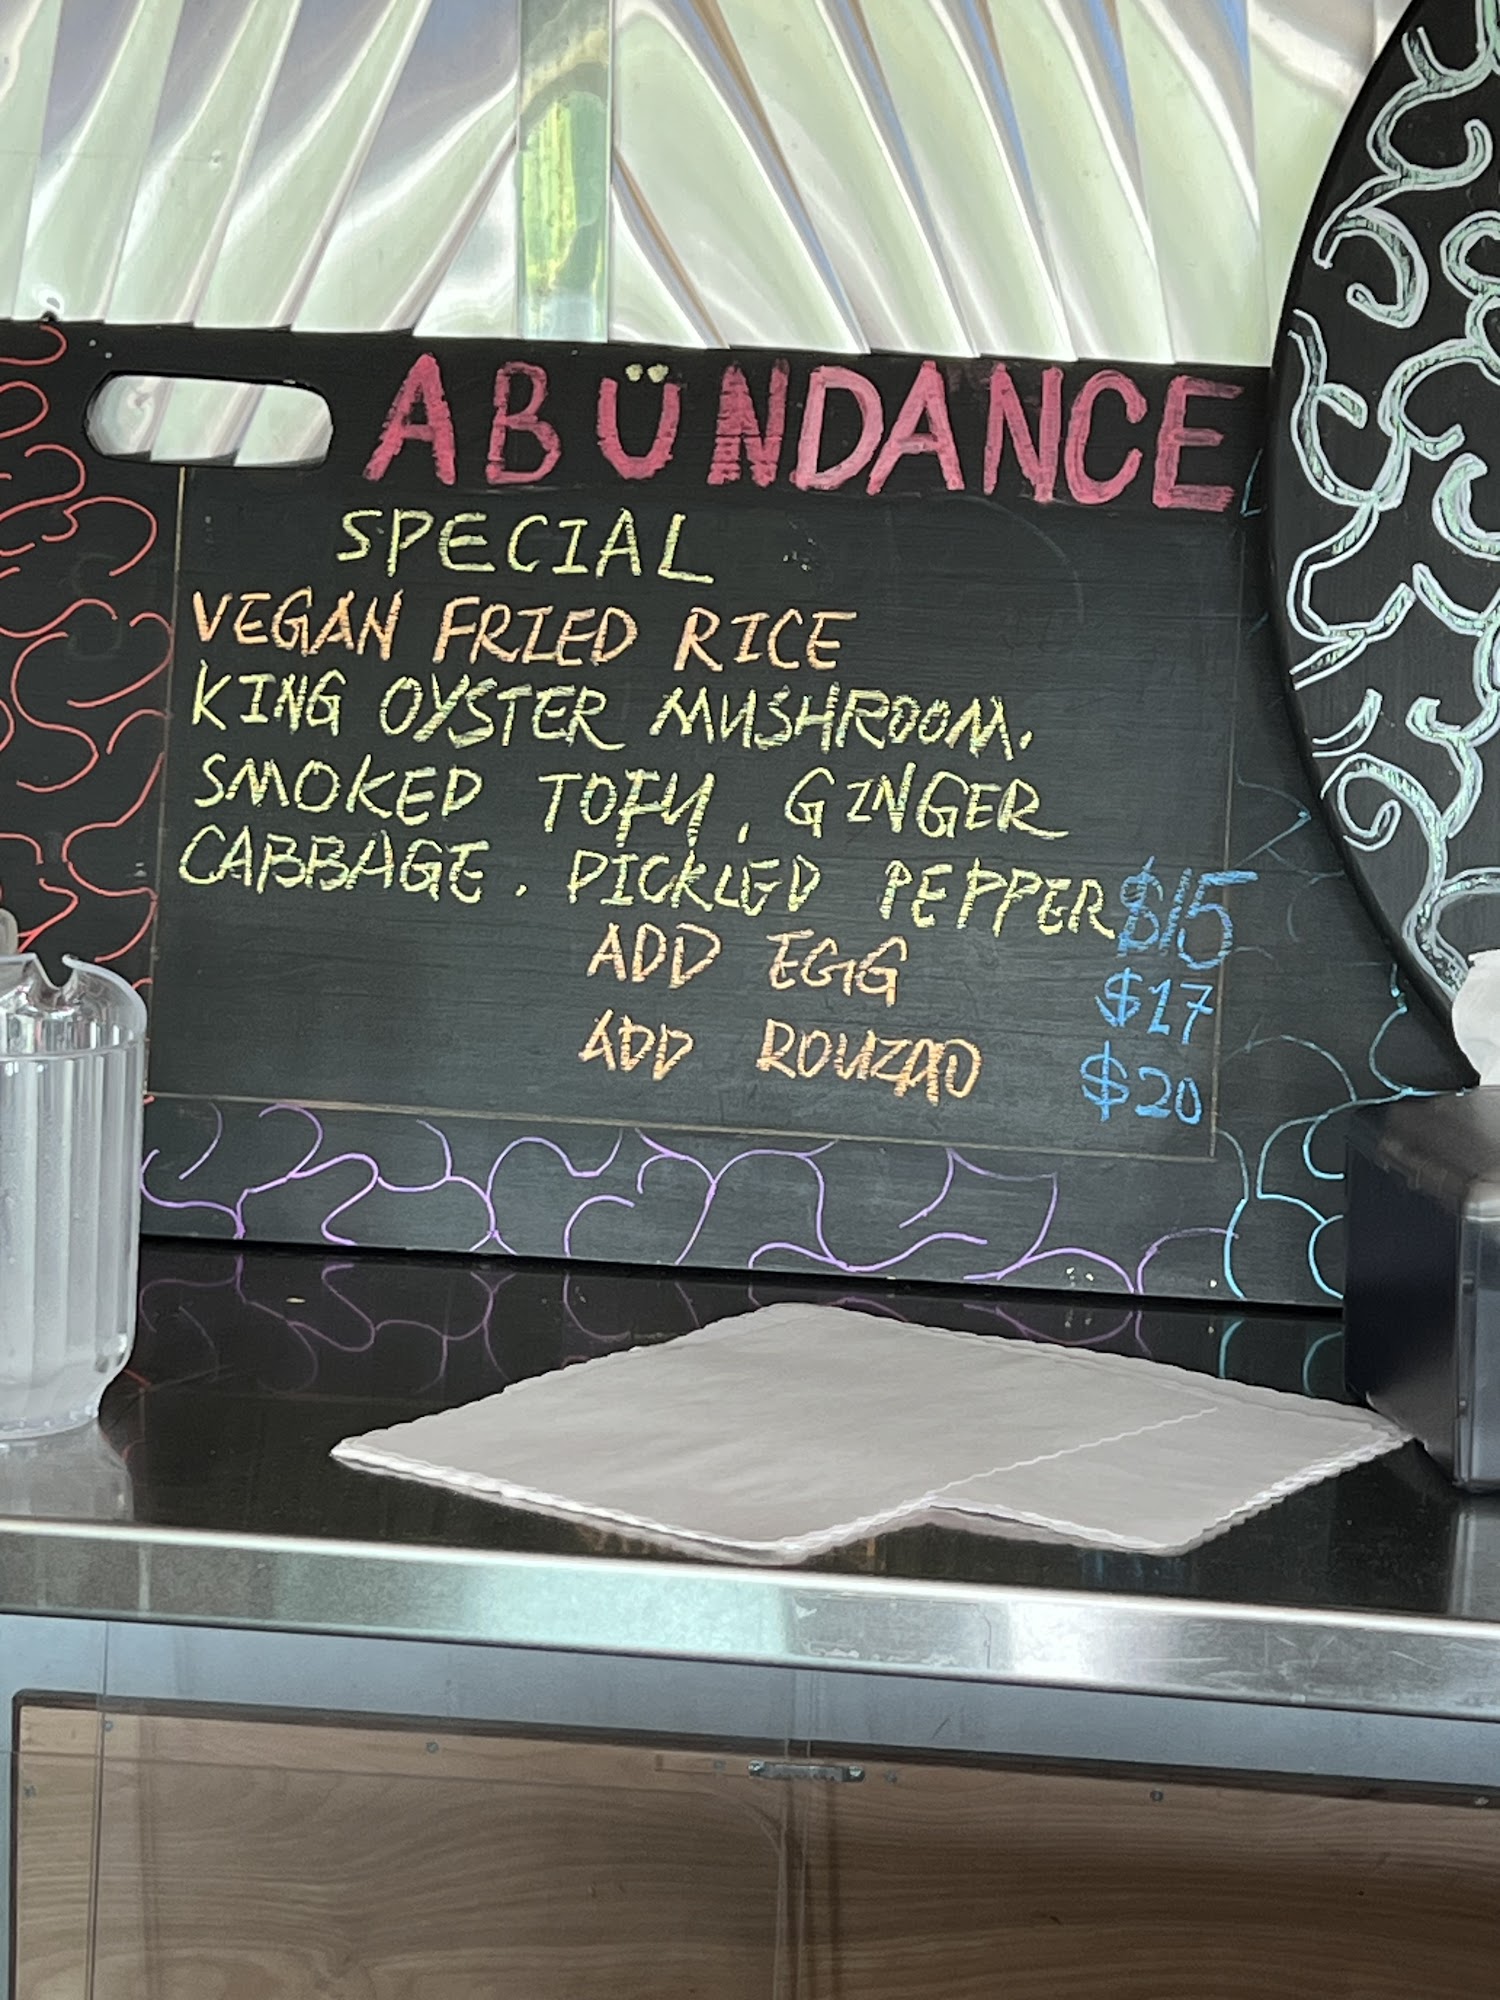 ABÜNDANCE
SPECIAL
VEGAN FRIED RICE
KING OYSTER MUSHROOM.
SMOKED TOFU, GINGER
CABBAGE. PICKLED PEPPER $15
ADD EGG $17
ADD ROUZAO $20